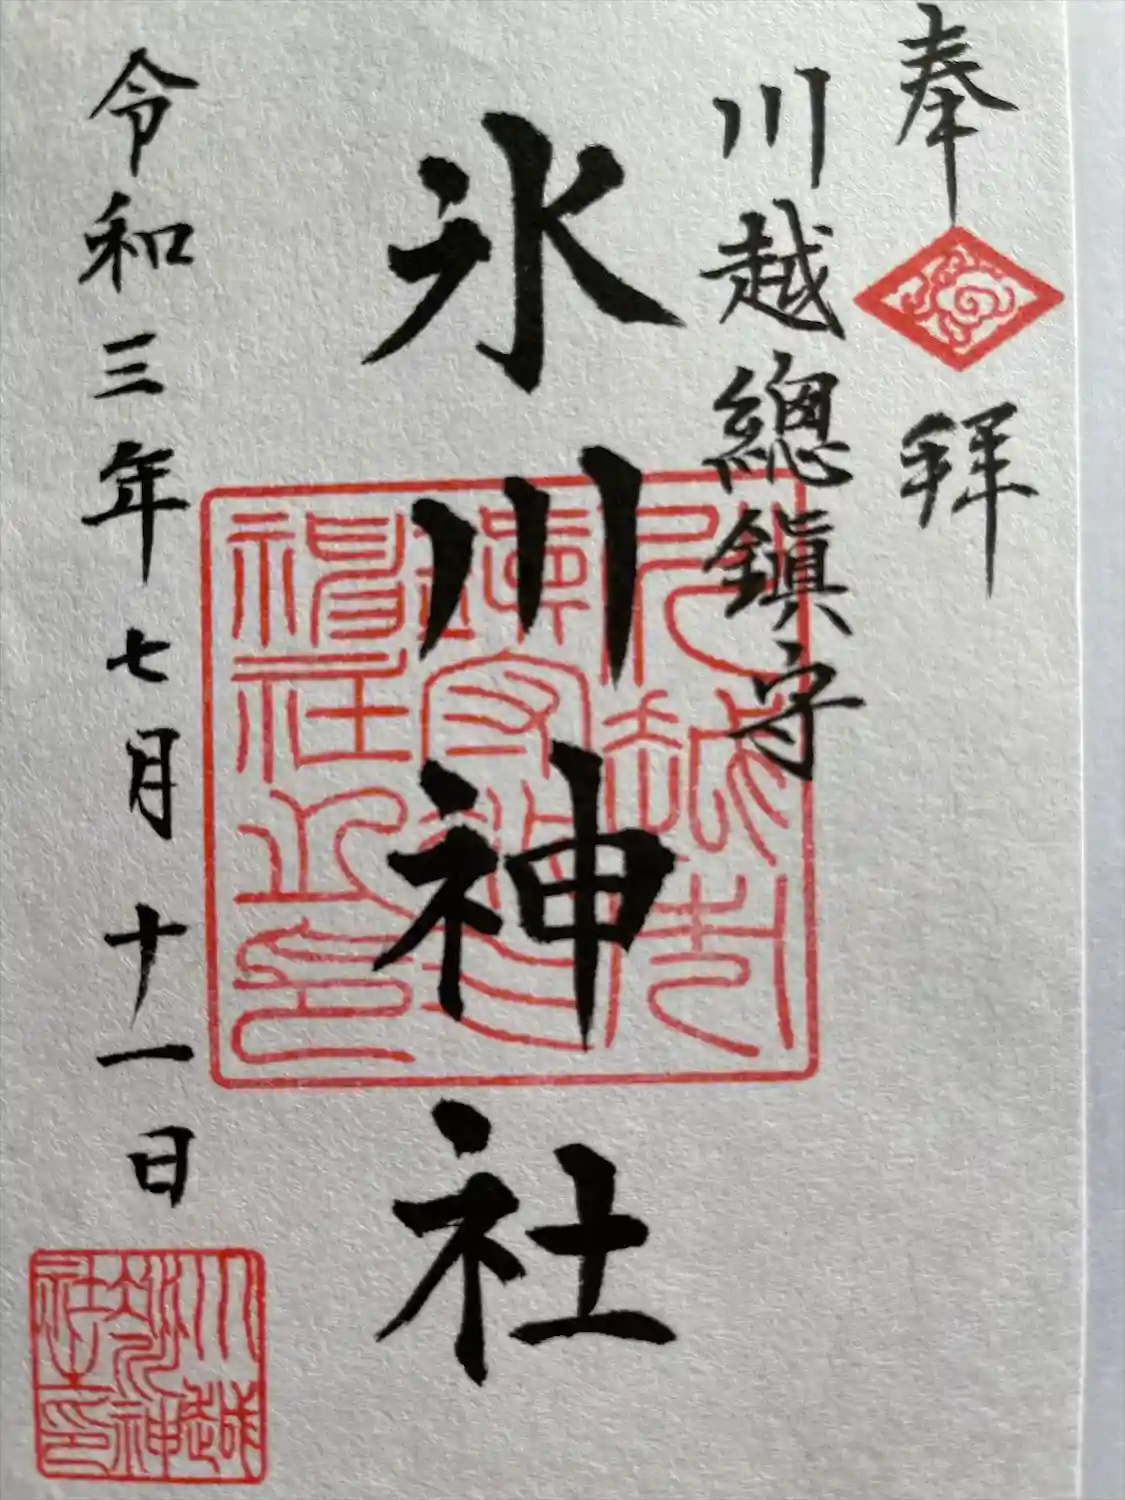 奉拝
川越總鎮守
氷川神社
令和三年七月十一日